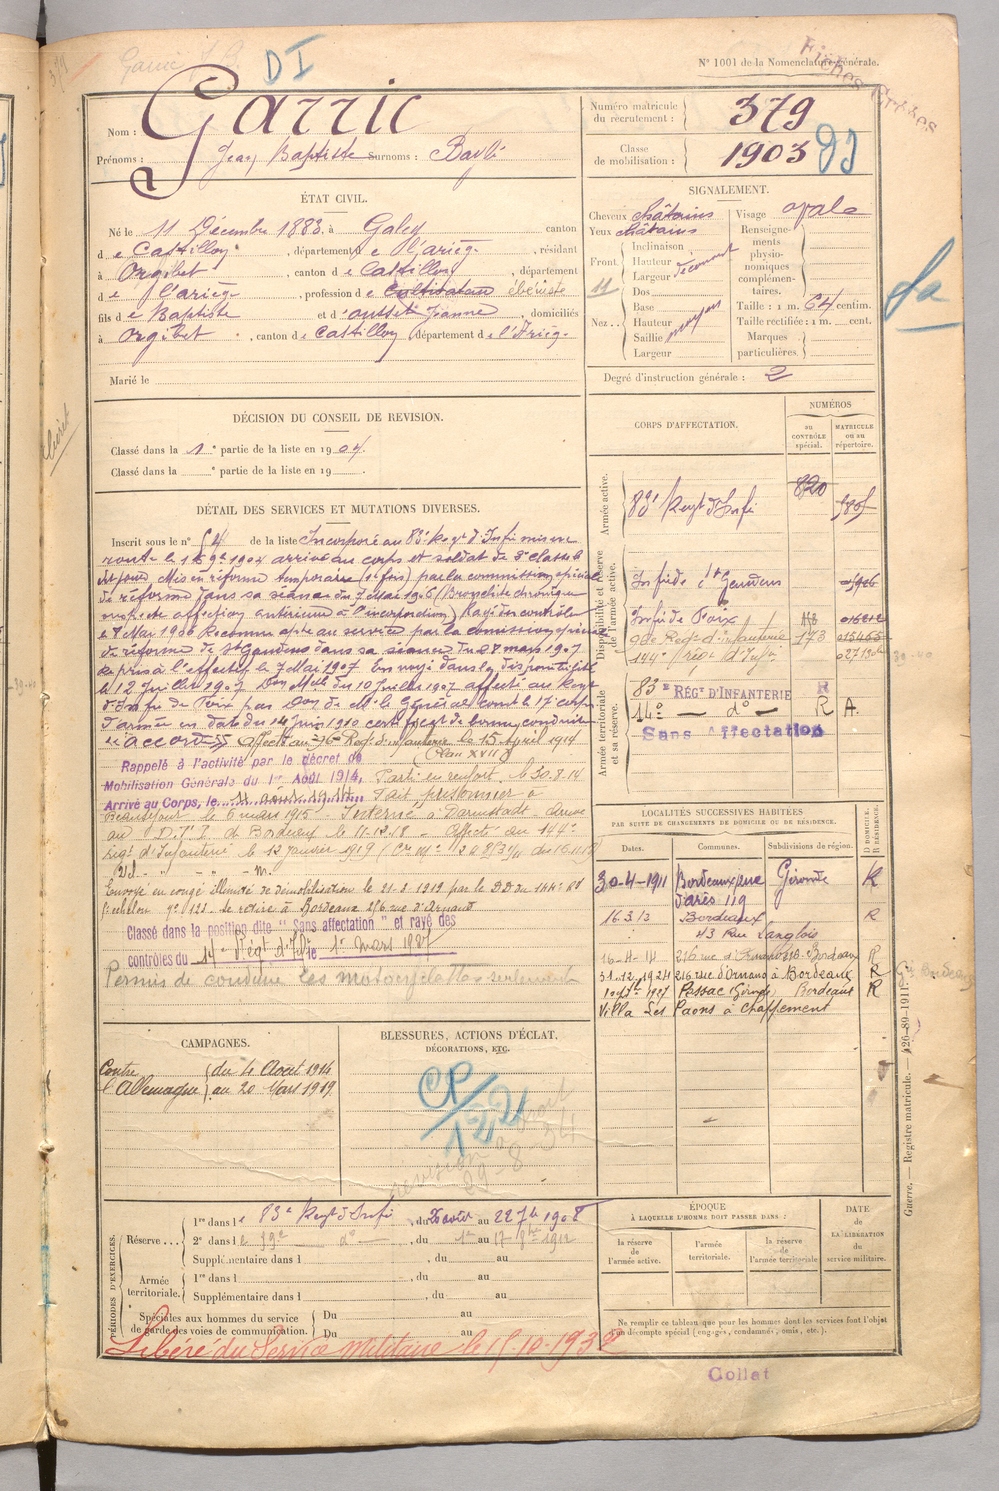 DI
N° 1001 de la Nomenclature générale.
Fiches
Nom : Garric
Prénoms : Jean Baptiste Surnoms :
Numéro matricule du recrutement : 379
Classe de mobilisation : 1903
ÉTAT CIVIL.
Né le 11 Décembre 1883, à Galey canton
de Castillon, département de l'Ariège, résidant
à Orgibet, canton de Castillon, département
de l'ariège, profession de cultivateur ébéniste
fils de Baptiste et d'ousset Jeanne, domiciliés
à Orgibet, canton de Castillon, département de l'Ariège
Marié le
SIGNALEMENT.
Cheveux châtains Visage ovale
Yeux châtains
Front. Inclinaison Hauteur Largeur découvert
Nez. Dos Base Hauteur Saillie Largeur moyen
Renseignements physionomiques complémentaires.
Taille : 1 m. 64 centim.
Taille rectifiée : 1 m. cent.
Marques particulières.
Degré d'instruction générale : 2
DÉCISION DU CONSEIL DE REVISION.
Classé dans la 1e partie de la liste en 1904.
Classé dans la e partie de la liste en 19
CORPS D'AFFECTATION.
NUMÉROS
au CONTRÔLE spécial.
MATRICULE ou au répertoire.
Armée active.
83e Regt d'Infie 820
Disponibilité et réserve de l'armée active.
Infie de St Gaudens
Infie de Foix
Reg. d'infanterie 173 015465
144e rég. d'Infie
Armée territoriale et sa réserve.
83e RÉGt D'INFANTERIE R
14e — do — R A.
Sans Affectation
DÉTAIL DES SERVICES ET MUTATIONS DIVERSES.
Inscrit sous le n° 54 de la liste Incorporé au 83e Regt d'Infie mis en
route le 9bre 1904 arrivé au corps et soldat de 2e classe le
dit jour. Mis en réforme temporaire (1re fois) par la commission spéciale
de réforme dans sa séance du 7 Mai 1906 (Bronchite chronique
suspecte affection antérieure à l'incorporation) Rayé des contrôles
le 8 Mai 1906 Reconnu apte au service par la commission spéciale
de réforme de St Gaudens dans sa séance du 28 mars 1907.
Repris à l'effectif le 7 Mai 1907. Envoyé dans la disponibilité
le 12 Juillet 1907. Don Mle du 10 Juillet 1907 affecté au Regt
d'Infie de Foix par Don de Mr le Général comt le 17e corps
d'armée en date du 14 Juin 1910 certificat de bonne conduite
accordé Affecté au Reg. d'infanterie le 15 April 1914
(Plan XVII)
Rappelé à l'activité par le décret de
Mobilisation Générale du 1er Août 1914,
Arrivé au Corps, le 11 août 1914
Parti en renfort le 30.8.14
Fait prisonnier à
Beauséjour le 6 mars 1915 - Interné à Darmstadt -
au D.I.I. de Bordeaux le 11-12-18 - Affecté au 144e
rég. d'Infanterie le 12 janvier 1919
Envoyé en congé illimité de démobilisation le 21-3-1919 par le DD du 144e RI
échelon n° 122. Se retire à Bordeaux 216 rue d'Ornano
Classé dans la position dite "Sans affectation" et rayé des
contrôles du 14e Régt d'Infie le 1er mars 1927
Permis de conduire les motocyclettes seulement
LOCALITÉS SUCCESSIVES HABITÉES
PAR SUITE DE CHANGEMENTS DE DOMICILE OU DE RÉSIDENCE.
Dates. Communes. Subdivisions de région.
D DOMICILE. R RÉSIDENCE.
30-4-1911 Bordeaux rue Gironde R
Jarès 119
16.3.13 Bordeaux R
43 Rue Langlois
16-4-14 216 rue d'Ornano Bordeaux R
31-12-1921 216 rue d'Ornano à Bordeaux R
1927 Pessac (Gironde) Bordeaux R
Villa Les Paons à Chappement
CAMPAGNES.
Contre l'Allemagne du 4 Août 1914
au 20 Mars 1919.
BLESSURES, ACTIONS D'ÉCLAT,
DÉCORATIONS, ETC.
CP/122
PÉRIODES D'EXERCICES.
Réserve... 1re dans le 83e Regt d'Infie, du août au 22 7bre 1908
2e dans le do, du 1er au 17 8bre 1912
Supplémentaire dans l , du au
Armée territoriale. 1re dans l , du au
Supplémentaire dans l , du au
Spéciales aux hommes du service de garde des voies de communication. Du au
Du au
ÉPOQUE
À LAQUELLE L'HOMME DOIT PASSER DANS :
la réserve de l'armée active.
l'armée territoriale.
la réserve de l'armée territoriale
DATE de LA LIBÉRATION du service militaire.
Ne remplir ce tableau que pour les hommes dont les services font l'objet d'un décompte spécial (engagés, condamnés, omis, etc.).
Libéré du Service Militaire le 15-10-1932
Collat
Guerre. — Registre matricule. — 126-89-1911.